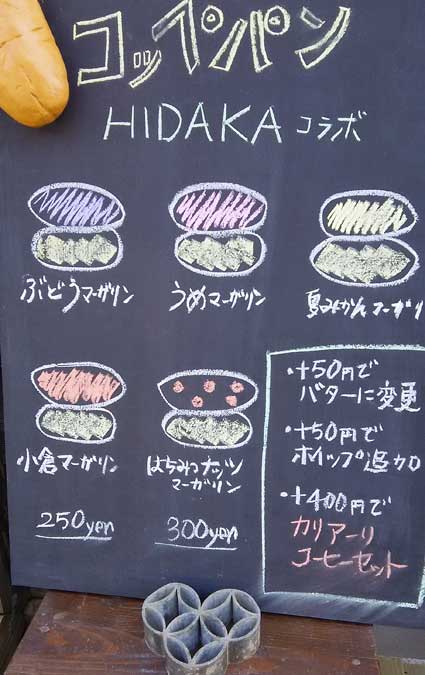 コッペパン
HIDAKA コラボ
ぶどうマーガリン
うめマーガリン
夏みかんマーガリ
小倉マーガリン
はちみつナッツ
マーガリン
250yen
300yen
・+50円で
バターに変更
・+50円で
ホイップ追加
・+400円で
カリアーリ
コーヒーセット